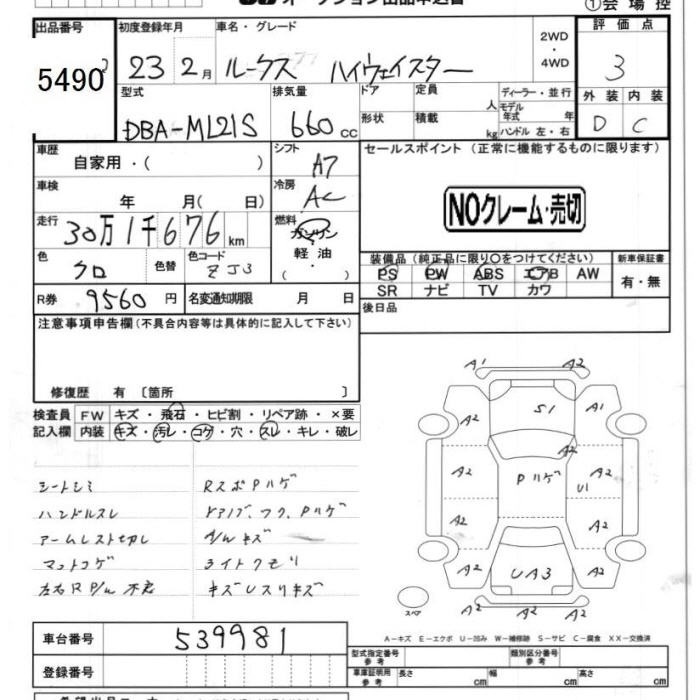 オークション出品申込書
①会場控
出品番号 初度登録年月 車名・グレード 2WD・4WD 評価点
5490 23 2月 ルークス ハイウェイスター 3
型式 排気量 ドア 定員 人 ディーラー・並行 外装 内装
DBA-ML21S 660cc 形状 積載 kg モデル年式 年 ハンドル 左・右 D C
車歴 シフト セールスポイント（正常に機能するものに限ります）
自家用・（ ） A7
車検 冷房
年 月（ 日） AC
NOクレーム・売切
走行 燃料
30万1千676km ガソリン
軽油
・（ ）
色 色替 色コード 装備品（純正品に限り○をつけてください） 新車保証書
クロ ZJ3 PS PW ABS エアB AW 有・無
SR ナビ TV カワ
R券 9560円 名変通知期限 月 日 後日品
注意事項申告欄（不具合内容等は具体的に記入して下さい）
修復歴 有〔箇所 〕
検査員 FW キズ・飛石・ヒビ割・リペア跡・×要
記入欄 内装 キズ・汚レ・コゲ・穴・スレ・キレ・破レ
シートシミ RスポPハゲ
ハンドルスレ ドアノブ、フク、Pハゲ
アームレスト切レ
マットコゲ ライトクモリ
キズUスリキズ
A1 A2
A2 S1 A1 A2
A2 Pハゲ A2 A2
U1
A2 A2
A2 UA3 A2
A2 A2 A2
スペア
A－キズ E－エクボ U－凹み W－補修跡 S－サビ C－腐食 XX－交換済
車台番号 539981
型式指定番号 参考 類別区分番号 参考
登録番号
車庫証明用 参考 長さ cm 幅 cm 高さ cm